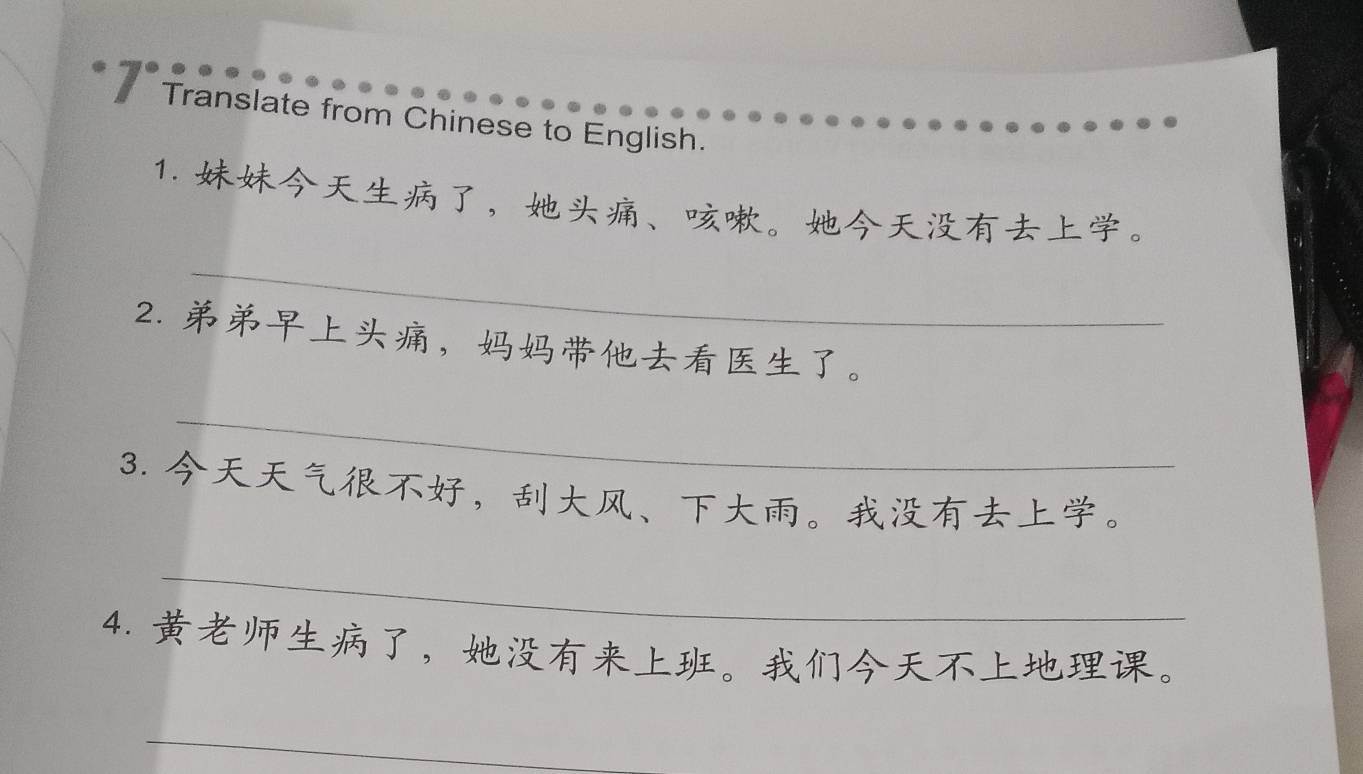 7 Translate from Chinese to English.
1. 妹妹今天生病了，她头痛、咳嗽。她今天没有去上学。
2. 弟弟早上头痛，妈妈带他去看医生了。
3. 今天天气很不好，刮大风、下大雨。我没有去上学。
4. 黄老师生病了，她没有来上班。我们今天不上地理课。